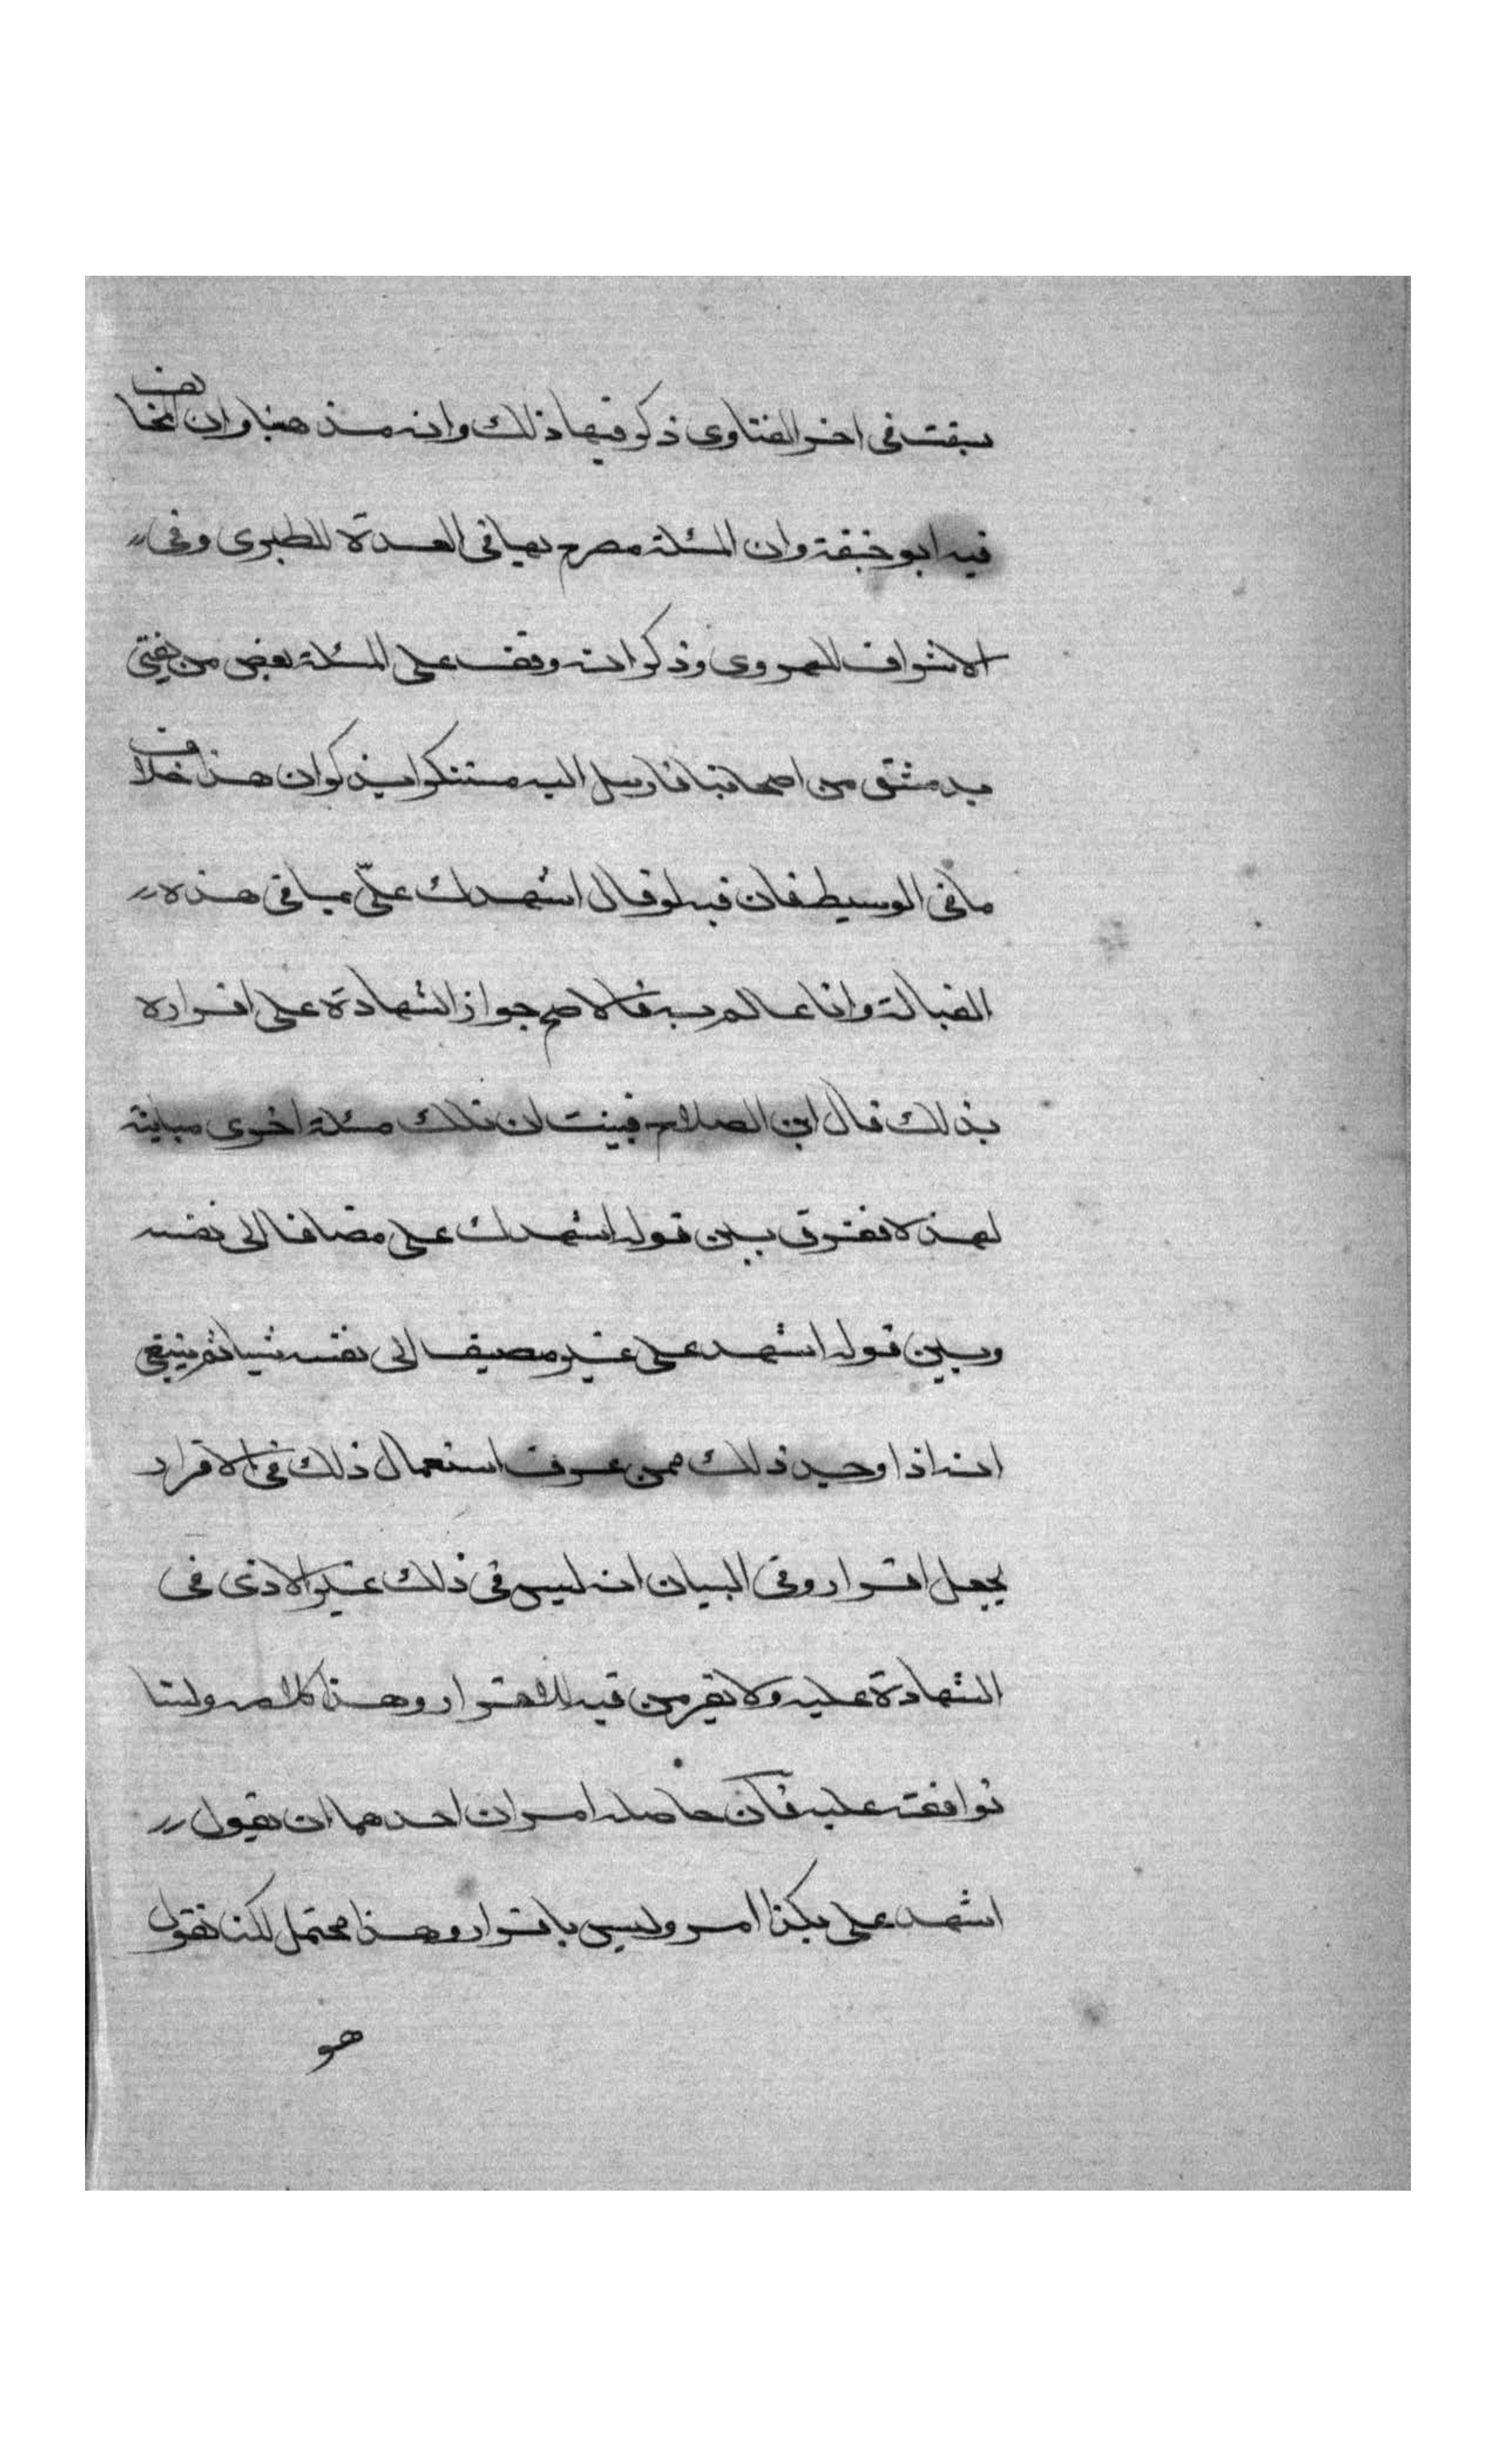 سبقت فى اخر الفتاوى ذكر فيها ذلك وانه مذهبنا وان المخالف
فيه ابو حنيفة وان المسئلة مصرح بها فى العدة للطبرى وفى
الاشراف للهروى وذكر انه وقف على المسئلة بعض من يفتى
بدمشق من اصحابنا فارسل اليه مستنكرا يذكر ان هذا خلاف
ما فى الوسيط فان فيه لو قال اشهدك علىّ بما فى هذه
القبالة وانا عالم به فالاصح جواز الشهادة على اقراره
بذلك قال ابن الصلاح فبينت ان تلك مسئلة اخرى مباينة
لهذه لا نفترق بين قوله اشهدك على مضافا الى نفسه
وبين قوله اشهد على غير مصيف الى نفسه شيا ثم ينبغى
انه اذا وجد ذلك ممن عرف استعمال ذلك فى الاقرار
يجعل اقرار وفى البيان انه ليس فى ذلك غير الاذن فى
الشهادة عليه ولا تعرض فيه للاقرار وهذا كلامه ولسنا
نوافقه عليه فكان حاصله امران احدهما ان يقول
اشهد على بكذا امر وليس باقرار وهذا محتمل لكنا نقول
هو